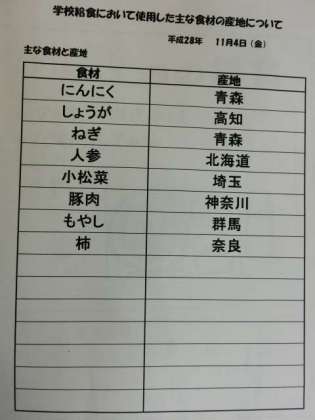 学校給食において使用した主な食材の産地について
平成28年 11月4日（金）
主な食材と産地
食材 産地
にんにく 青森
しょうが 高知
ねぎ 青森
人参 北海道
小松菜 埼玉
豚肉 神奈川
もやし 群馬
柿 奈良